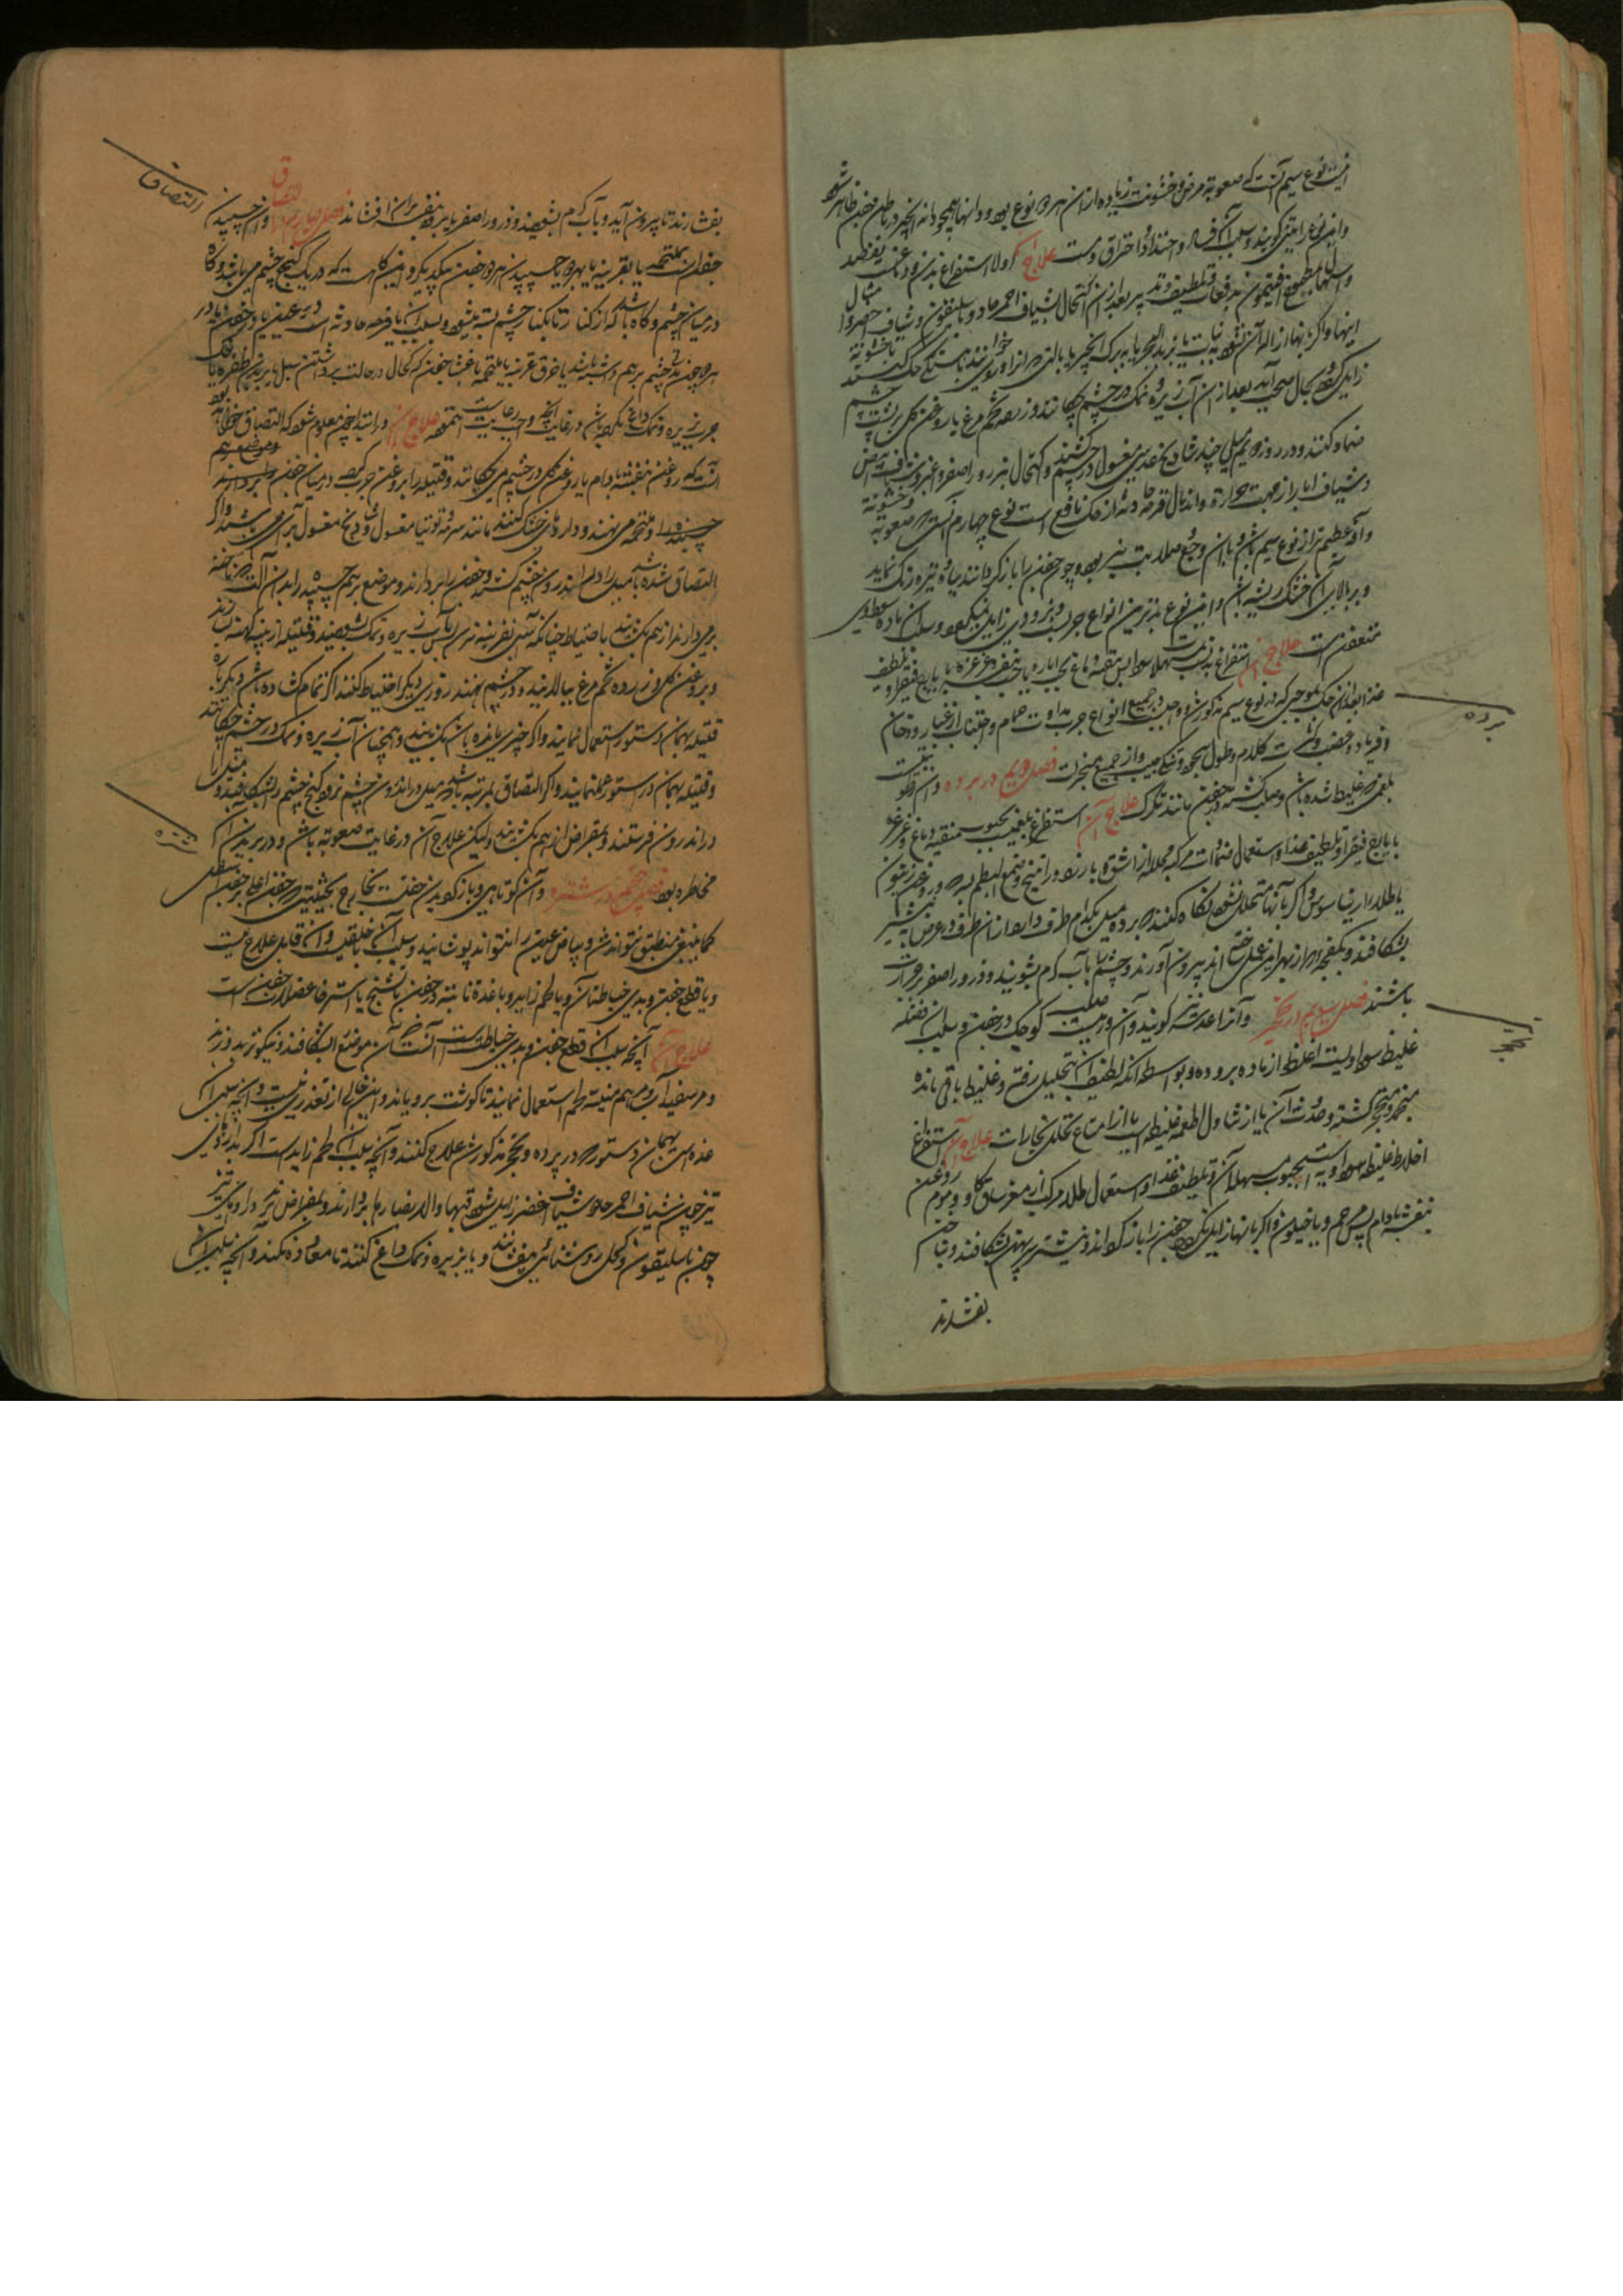 این نوع سیم آنست که صعوبة مرض و خشونت زیاده از ان هر دو نوع بود و دانها همچو دانه انجیر در باطن جفن ظاهر شود
و این نوع را تینی گویند و سبب آن فساد و احتداد و احتراق دمست علاج اولا استفراغ بدن و دماغست بفصد
و اسهال بمطبوخ افتیمون بدفعات و تلطیف تدبیر بعد از ان اکتحال بشیاف احمر حاد و باسلیقون و شیاف اخضر و امثال
اینها و اگر بهذا ازاله آن نشود به نبات یا بزبد البحر یا به برگ انجیر یا
زایل گردد و بحال صحت آید بعد از ان آب زیره و نمک در چشم چکانند و زرده تخم مرغ با روغن گل بر پشت چشم
ضماد کنند و در روز دویم میل چند شادنج عدسی مغسول در چشم کشند و اکتحال بذرور اصفر و اغبر
و شیاف ابار از جهت حرارة و اندمال قرحه حادثه از حک نافع است نوع چهارم آنست که صعوبة و خشونة
و آن عظیم تر از نوع سیم باشد و با ان وجع و صلابت نیز بود و چون جفن را باز گردانند سیاه و تیره رنگ نماید
و بر بالای آن خشک ریشه باشد و این نوع بدترین انواع جرب و بزودی زایل نمیگردد و سبب آن ماده سوداوی
متعفن است علاج آن استفراغ بدنست بمسهلات سودا پس تنقیه دماغ بحب ایاره یا حب بنفشه و غرغره بایارج فیقرا و تلطیف
غذا بعد از ان حک بموجبی که در نوع سیم مذکور شد و واجبست در جمیع انواع جرب مداومت حمام و اجتناب از غبار و دخان
و فریاد و غضب و کثرت کلام و طول سجود و تنگی جیب و از جمیع مبخرات فصل دویم در برده و آن رطوبتیست
بلغمی غلیظ شده باشد و صلب گشته در جفن مانند تگرگ علاج آن استفراغ بلغمست بحبوب منقیه دماغ و غرغره
بایارج فیقرا و تلطیف غذا و استعمال ضمادات مرکبه محلله از اشق و بارزد و راتینج و صمغ البطم بسرکه و روغن زیتون
یا طلا دارینا سوس و اگر بانها متحلل نشود نگاه کنند که برده میل بکدام طرف دارد از ان طرف در عرض به نیشتر
بشکافند و بکفچه که از بهر این عمل ساخته اند بیرون آورند و چشم را با آب گرم بشویند و ذرور اصفر بر جراحت
باشند فصل سیوم در تحجر و آنرا عدسه گویند و آن ورمیست صلب کوچک در جفن و سبب آن فضله
غلیظ سوداویست اغلظ از ماده برده و بواسطه آنکه لطیف آن بتحلیل رفته و غلیظ باقی مانده
منجمد و متحجر گشته و حدوث آن یا از تناول اطعمه غلیظه است یا از امتناع تحلل بخارات علاج آن استفراغ
اخلاط غلیظه سوداویه است بحبوب مسهله آن و تلطیف غذا و استعمال طلاء مرکب از مغز ساق گاو و موم روغن
بنفشه بادام پس مرهم دیاخیلون و اگر بانها زایل نگردد جفن را باز گردانند و بنیشتر سر پهن بشکافند و بناخن
بفشارند
برده
تحجر
بفشارند تا بیرون آید و بآب گرم بشویند و ذرور اصفر یا پر بنفشه بران افشانند فصل چهارم در التصاق و ان چسپیدن
التصاق
جفنان بملتحمه یا بقرنیه یا بهر دو یا چسپیدن هر دو جفن بیکدیگر و این گاهست که در یک کنج چشم می باشد و گاه
در میان چشم و گاه باشد که از کنار تا بکنار چشم بسته میشود و سبب آن یا قرحه حادثه است در عین یا در جفن یا در
هر دو چون بدان چشم برهم بسته باشد یا خرق قرنیه یا ملتحمه یا غشا جفن که کحال در حالت برداشتن سبل یا بریدن ظفره یا حک
جرب بزیره و نمک داغ نکرده باشد و رعایت آنچه واجبست نموده علاج آن و در ابتدا چون معلوم شود که التصاق خواهد بود
آنست که روغن بنفشه بادام یا روغن گل در چشم می چکانند و فتیله را بروغن چرب کرده در میان جفن
و ملتحمه می نهند و داروهای خشک کننده مانند سرمه و توتیا مغسول و شادنج مغسول بر آن می پاشند و اگر
التصاق شده باشد میل را در اندرون چشم کنند و جفن را بردارند و موضع برهم چسپیده را بدان آلت که ناخنه
برمی دارند از هم بگشایند باحتیاط چنانکه آسیب بقرنیه نرسد پس بآب زیره و نمک بشویند و فتیله از پنبه کهنه تر کنند
و بروغن گل و زرده تخم مرغ بیالایند و در چشم نهند و روزی دیگر احتیاط کنند اگر تمام گشاده باشد دیگر باره
فتیله بهمان دستور استعمال نمایند و اگر چیزی مانده باشد بگشایند و همچنان آب زیره و نمک در چشم چکانند
و فتیله بهمان دستور همی نهند و اگر التصاق بمرتبه باشد که میل در اندرون چشم نرود کنج چشم را بشکافند و میل را
در اندرون فرستند و بمقراض از هم بگشایند و لیکن علاج آن در غایت صعوبة باشد و در بریدن آن
مخاطره بود فصل پنجم در شتره و آن کوتاهی و باز گردیدن جفنست بخارج بحیثیتی که جفن اعلی بر جفن اسفل
شتره
کما ینبغی منطبق نتواند شد و بیاض عین را نتواند پوشانید و سبب آن یا خلقیست و ان قابل علاج نیست
و یا قطع جفن و بدی خیاطت آن و یا لحم زاید و یا غده نابته در جفن یا تشنج یا استرخا عضلات جفن است
علاج آن آنچه سبب آن قطع جفن و بدی خیاطتست آنست که آن موضع را بشکافند و نیکوتر بدوزند
و مرهم سفیداب و مراهم منبته لحم استعمال نمایند تا گوشت برویاند و این خالی از تعذر نیست و انچه سبب آن
غده است بهمان دستور که در برده و تحجر مذکور شد علاج کنند و آنچه سبب آن لحم زایدست اگر بداروهای
تیز چون شیاف احمر حاد و شیاف اخضر زایل شود فبها و الا بصنارها بردارند و بمقراض ببرند و داروهای تیز
چون باسلیقون و کحل روشنائی بیفشانند و یا بزیره و نمک داغ کنند تا معاوده نکند و آنچه سبب آن